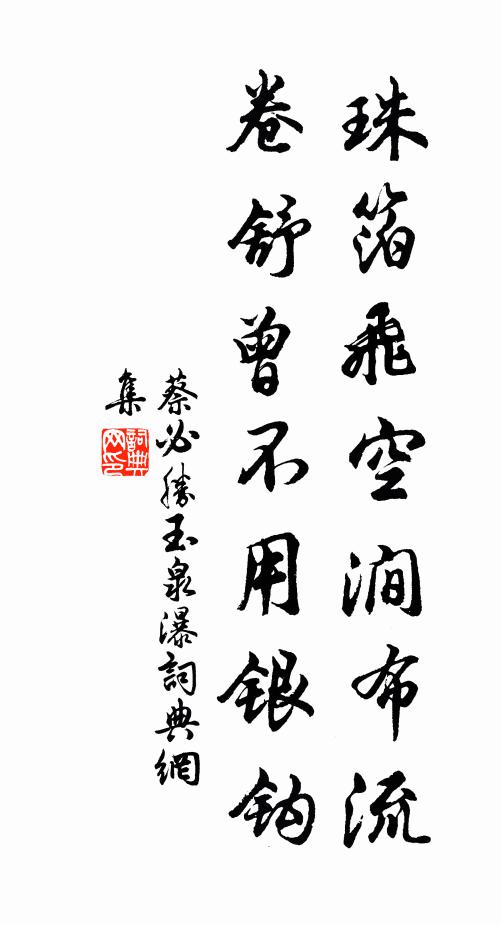 珠箔飛空澗布流
卷舒曾不用銀鈎
蔡必勝玉泉瀑詞典網
集
詞典网印